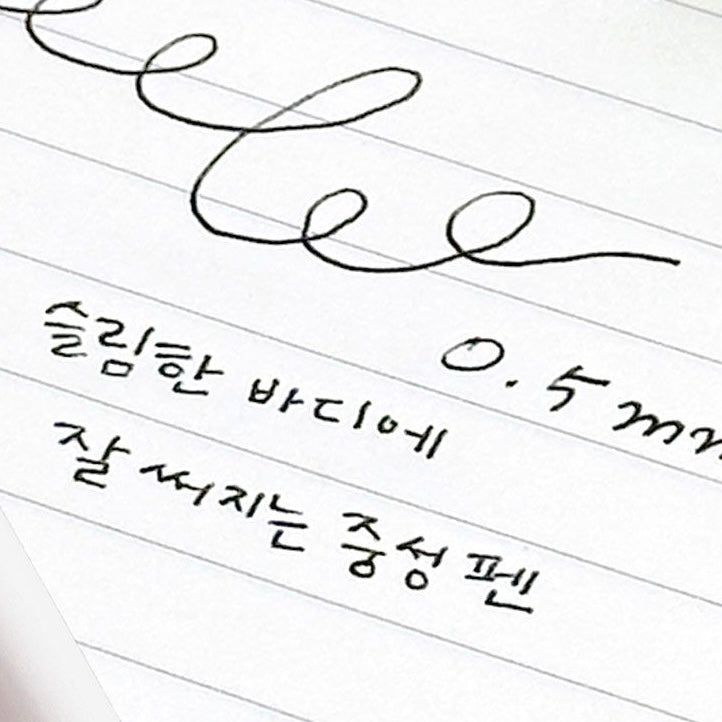 0.5mm
슬림한 바디에
잘 써지는 중성펜